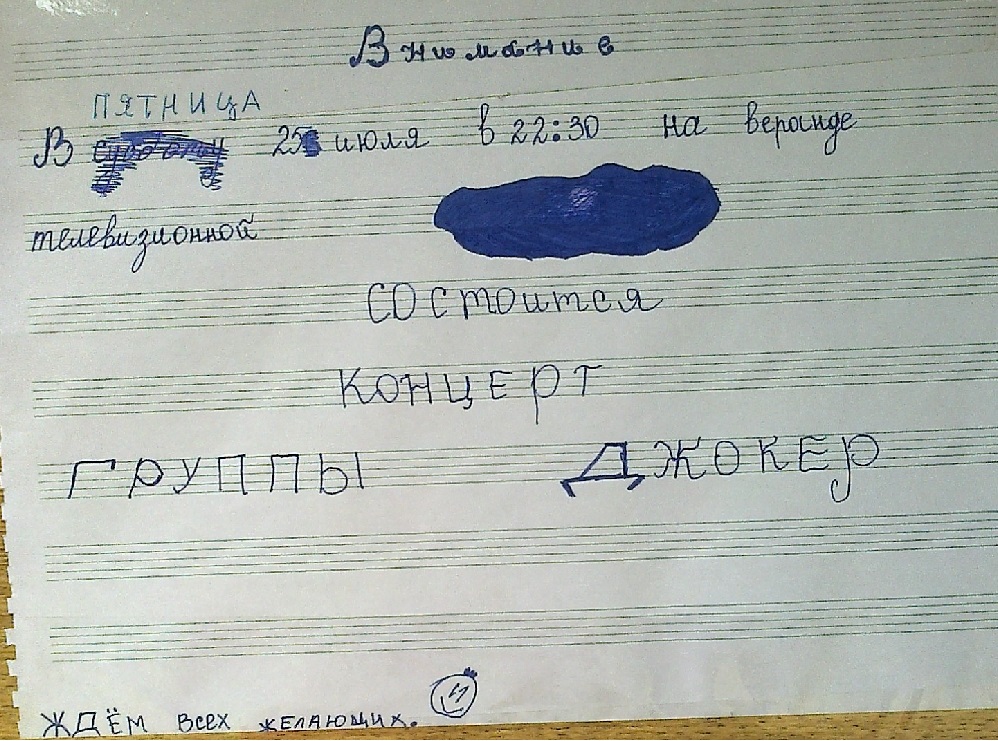 Внимание
ПЯТНИЦА
В субботу 25 июля в 22:30 на веранде
телевизионной
состоится
концерт
ГРУППЫ ДЖОКЕР
ЖДЁМ всех желающих.